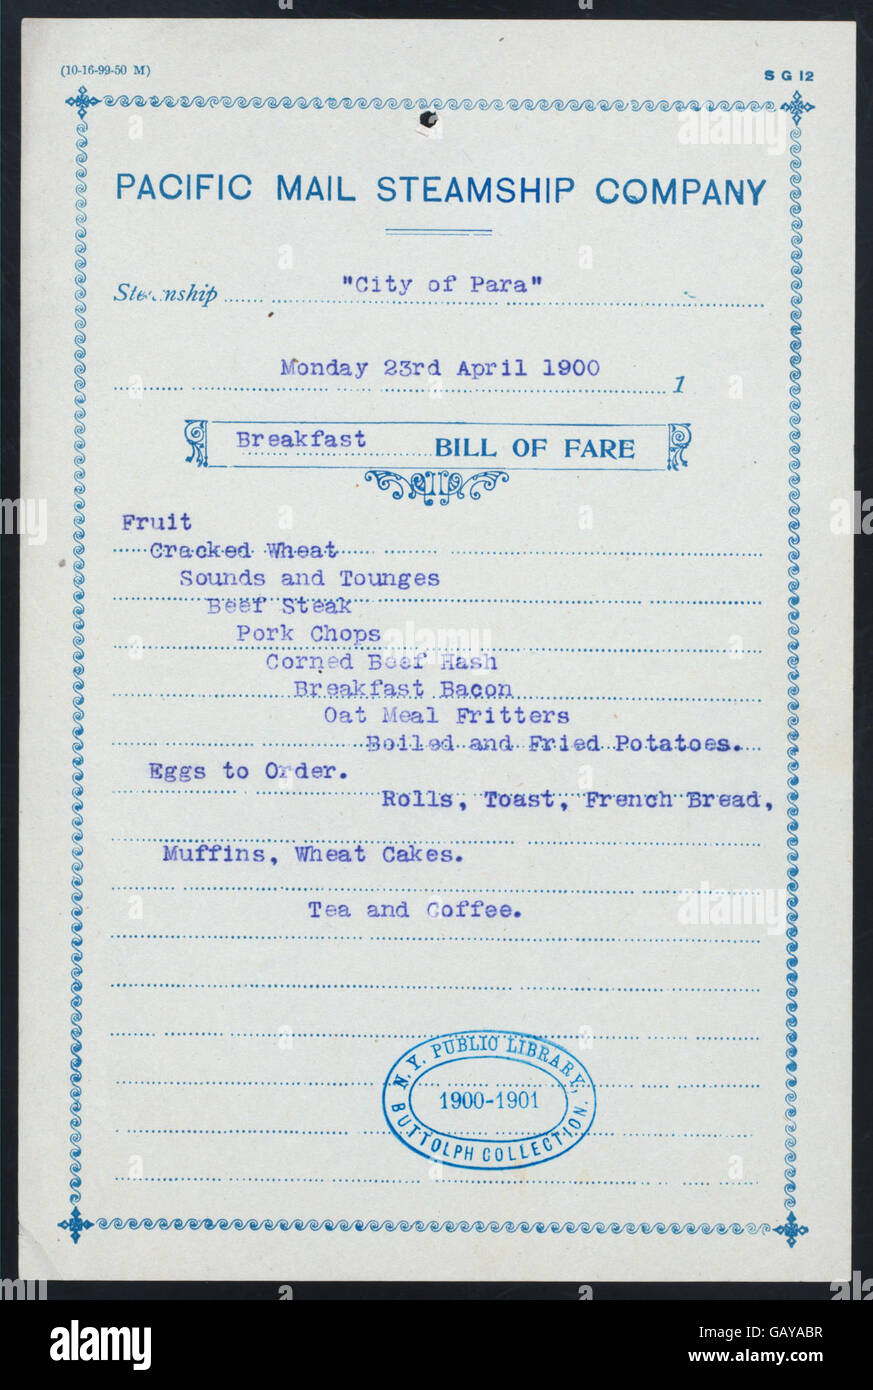 (10-16-99-50 M)
S G 12
PACIFIC MAIL STEAMSHIP COMPANY
Steamship "City of Para"
Monday 23rd April 1900
1
Breakfast BILL OF FARE
Fruit
Cracked Wheat
Sounds and Tounges
Beef Steak
Pork Chops
Corned Beef Hash
Breakfast Bacon
Oat Meal Fritters
Boiled and Fried Potatoes.
Eggs to Order.
Rolls, Toast, French Bread,
Muffins, Wheat Cakes.
Tea and Coffee.
N.Y. PUBLIC LIBRARY,
1900-1901
BUTTOLPH COLLECTION.
alamy
alamy
alamy
alamy
alamy
alamy
Image ID: GAYABR
www.alamy.com